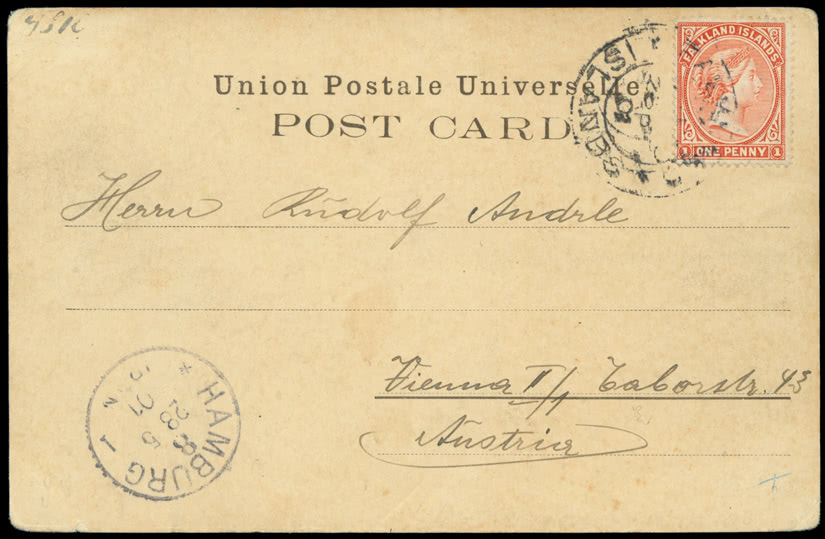 FALKLAND ISLANDS
1 ONE PENNY 1
Union Postale Universelle
POST CARD
ISLANDS
Herrn Rudolf Andrle
Vienna II/1 Taborstr. 43
Austria
* HAMBURG 1